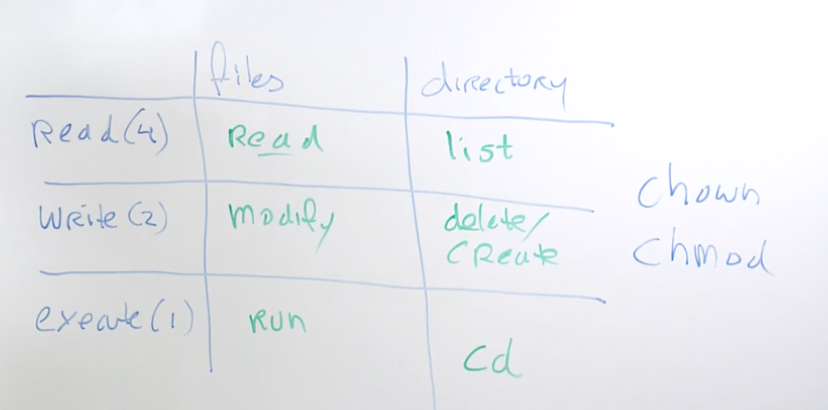 files directory
Read(4) Read list
Write(2) modify delete/
CReate
execute(1) RUN cd
Chown
Chmod